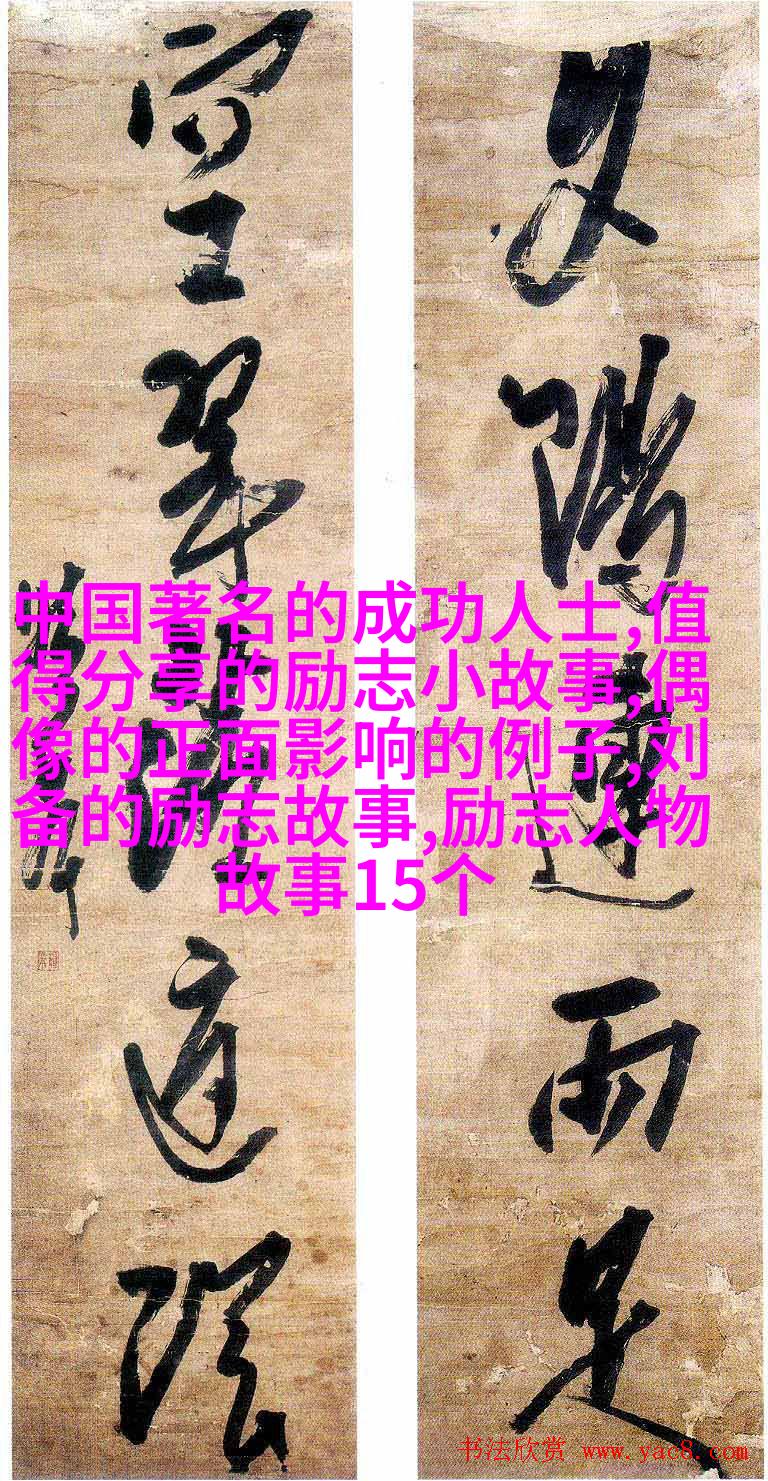 夕陽連雨足
空翠落庭陰
中国著名的成功人士,值
得分享的励志小故事,偶
像的正面影响的例子,刘
备的励志故事,励志人物
故事15个
书法欣赏 www.yac8.com